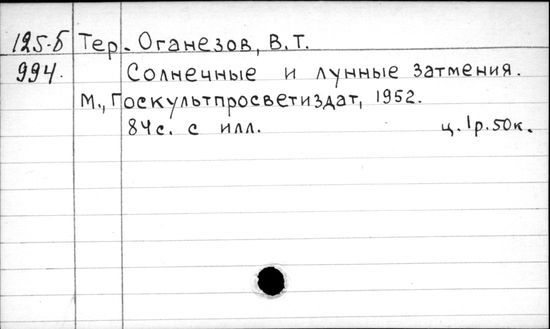 125-б Тер-Оганезов, В.Т.
994. Солнечные и лунные затмения.
М., Госкультпросветиздат, 1952.
84с. с илл. ц. 1р.50к.